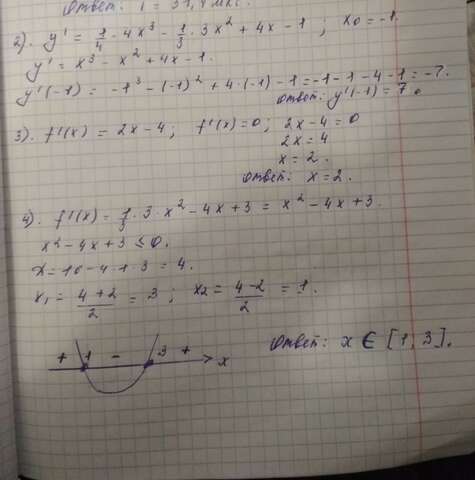 Ответ: 1 = 31,4 мкс.
2). y' = 1/4 · 4x³ - 1/3 · 3x² + 4x - 1 ; x₀ = -1.
y' = x³ - x² + 4x - 1.
y'(-1) = -1³ - (-1)² + 4·(-1) - 1 = -1 - 1 - 4 - 1 = -7.
Ответ: y'(-1) = 7.
3). f'(x) = 2x - 4 ; f'(x) = 0 ; 2x - 4 = 0
2x = 4
x = 2.
Ответ: x = 2.
4). f'(x) = 1/3 · 3 · x² - 4x + 3 = x² - 4x + 3.
x² - 4x + 3 ≤ 0.
D = 16 - 4 · 1 · 3 = 4.
x₁ = (4 + 2)/2 = 3 ; x₂ = (4 - 2)/2 = 1.
+ 1 - 3 + x
Ответ: x ∈ [1, 3].